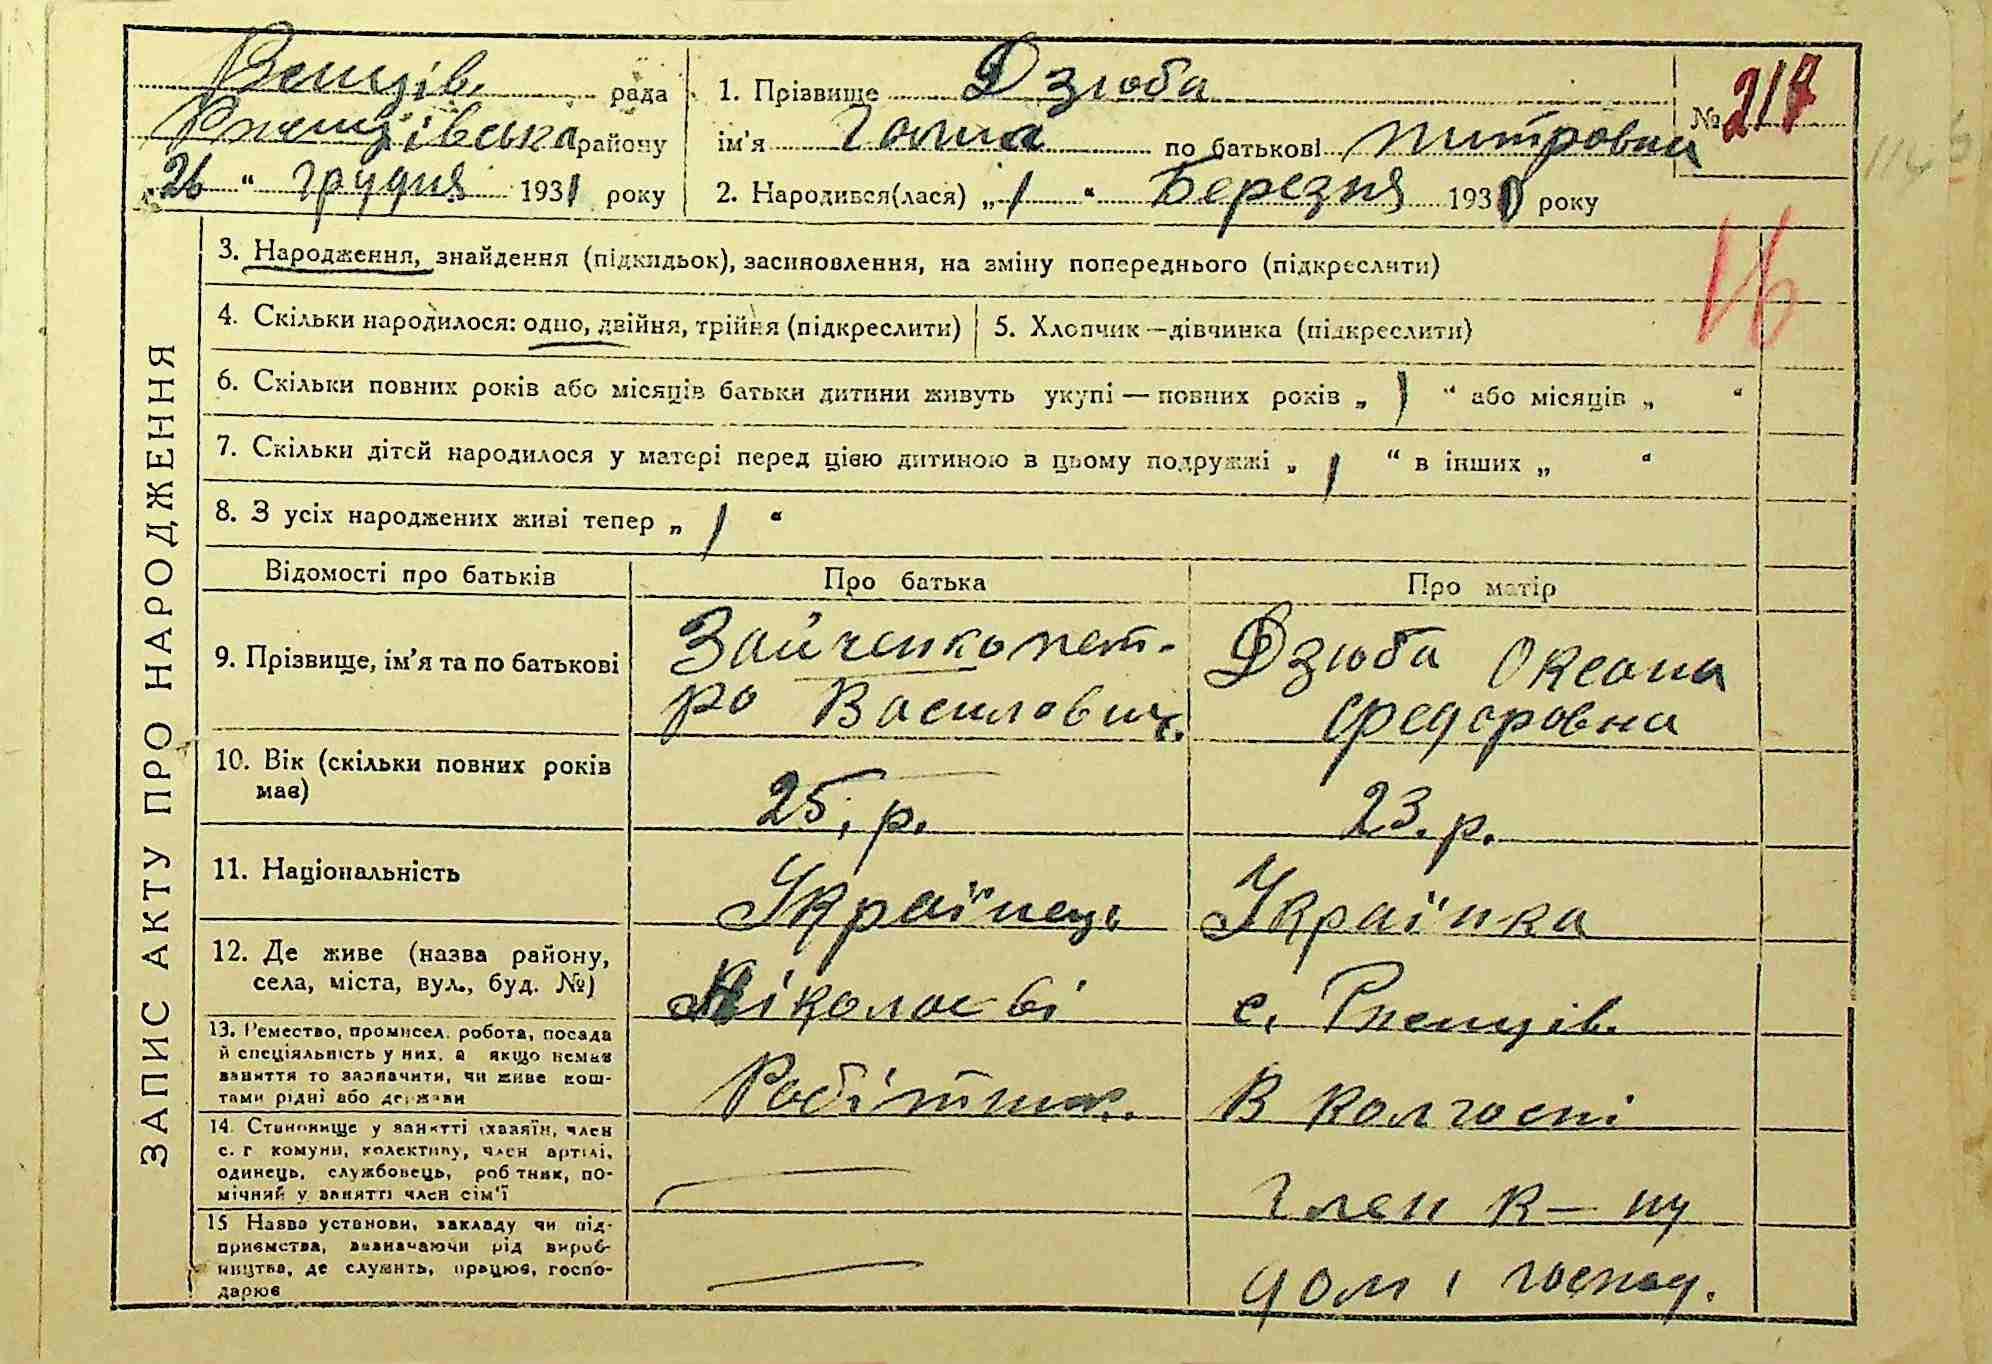 рада
району
26 " грудня 1931 року
1. Прізвище Дзюба
ім'я Галина по батькові
2. Народився(лася) „ 1 " Березня 1930 року
№ 217
16
ЗАПИС АКТУ ПРО НАРОДЖЕННЯ
3. Народження, знайдення (підкидьок), засиновлення, на зміну попереднього (підкреслити)
4. Скільки народилося: одно, двійня, трійня (підкреслити)
5. Хлопчик — дівчинка (підкреслити)
6. Скільки повних років або місяців батьки дитини живуть укупі — повних років „ 1 " або місяців „ "
7. Скільки дітей народилося у матері перед цією дитиною в цьому подружжі „ 1 " в інших „ "
8. З усіх народжених живі тепер „ 1 "
Відомості про батьків
Про батька
Про матір
9. Прізвище, ім'я та по батькові
Зайченко Пет-
ро Василович.
Дзюба Оксана
Федоровна
10. Вік (скільки повних років
має)
25. р.
23. р.
11. Національність
Українець
Українка
12. Де живе (назва району,
села, міста, вул., буд. №)
Ніколаєві
с.
13. Ремество, промисел. робота, посада
й спеціяльність у них, а якщо немає
заняття то зазначити, чи живе кош-
тами рідні або держави
Робітник.
В колгоспі
14. Становище у занятті (хазяїн, член
с. г комуни, колективу, член артілі,
одинець, службовець, робітник, по-
мічний у занятті член сім'ї
Член к-пу
15 Назва установи, закладу чи під-
приємства, зазначаючи рід вироб-
ництва, де служить, працює, госпо-
дарює
дом. господ.